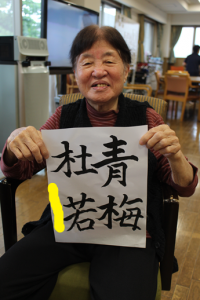 青梅
杜若